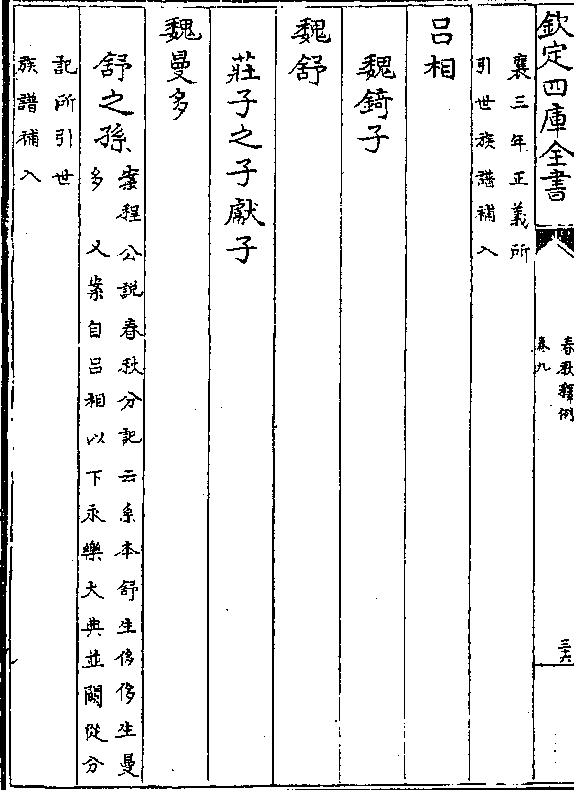 欽定四庫全書
春秋釋例
卷九
三六
襄三年正義所
引世族譜補入
呂相
魏錡子
魏舒
莊子之子獻子
魏曼多
舒之孫案程公說春秋分記云系本舒生侈侈生曼
多又案自呂相以下永樂大典並闕從分
記所引世
族譜補入